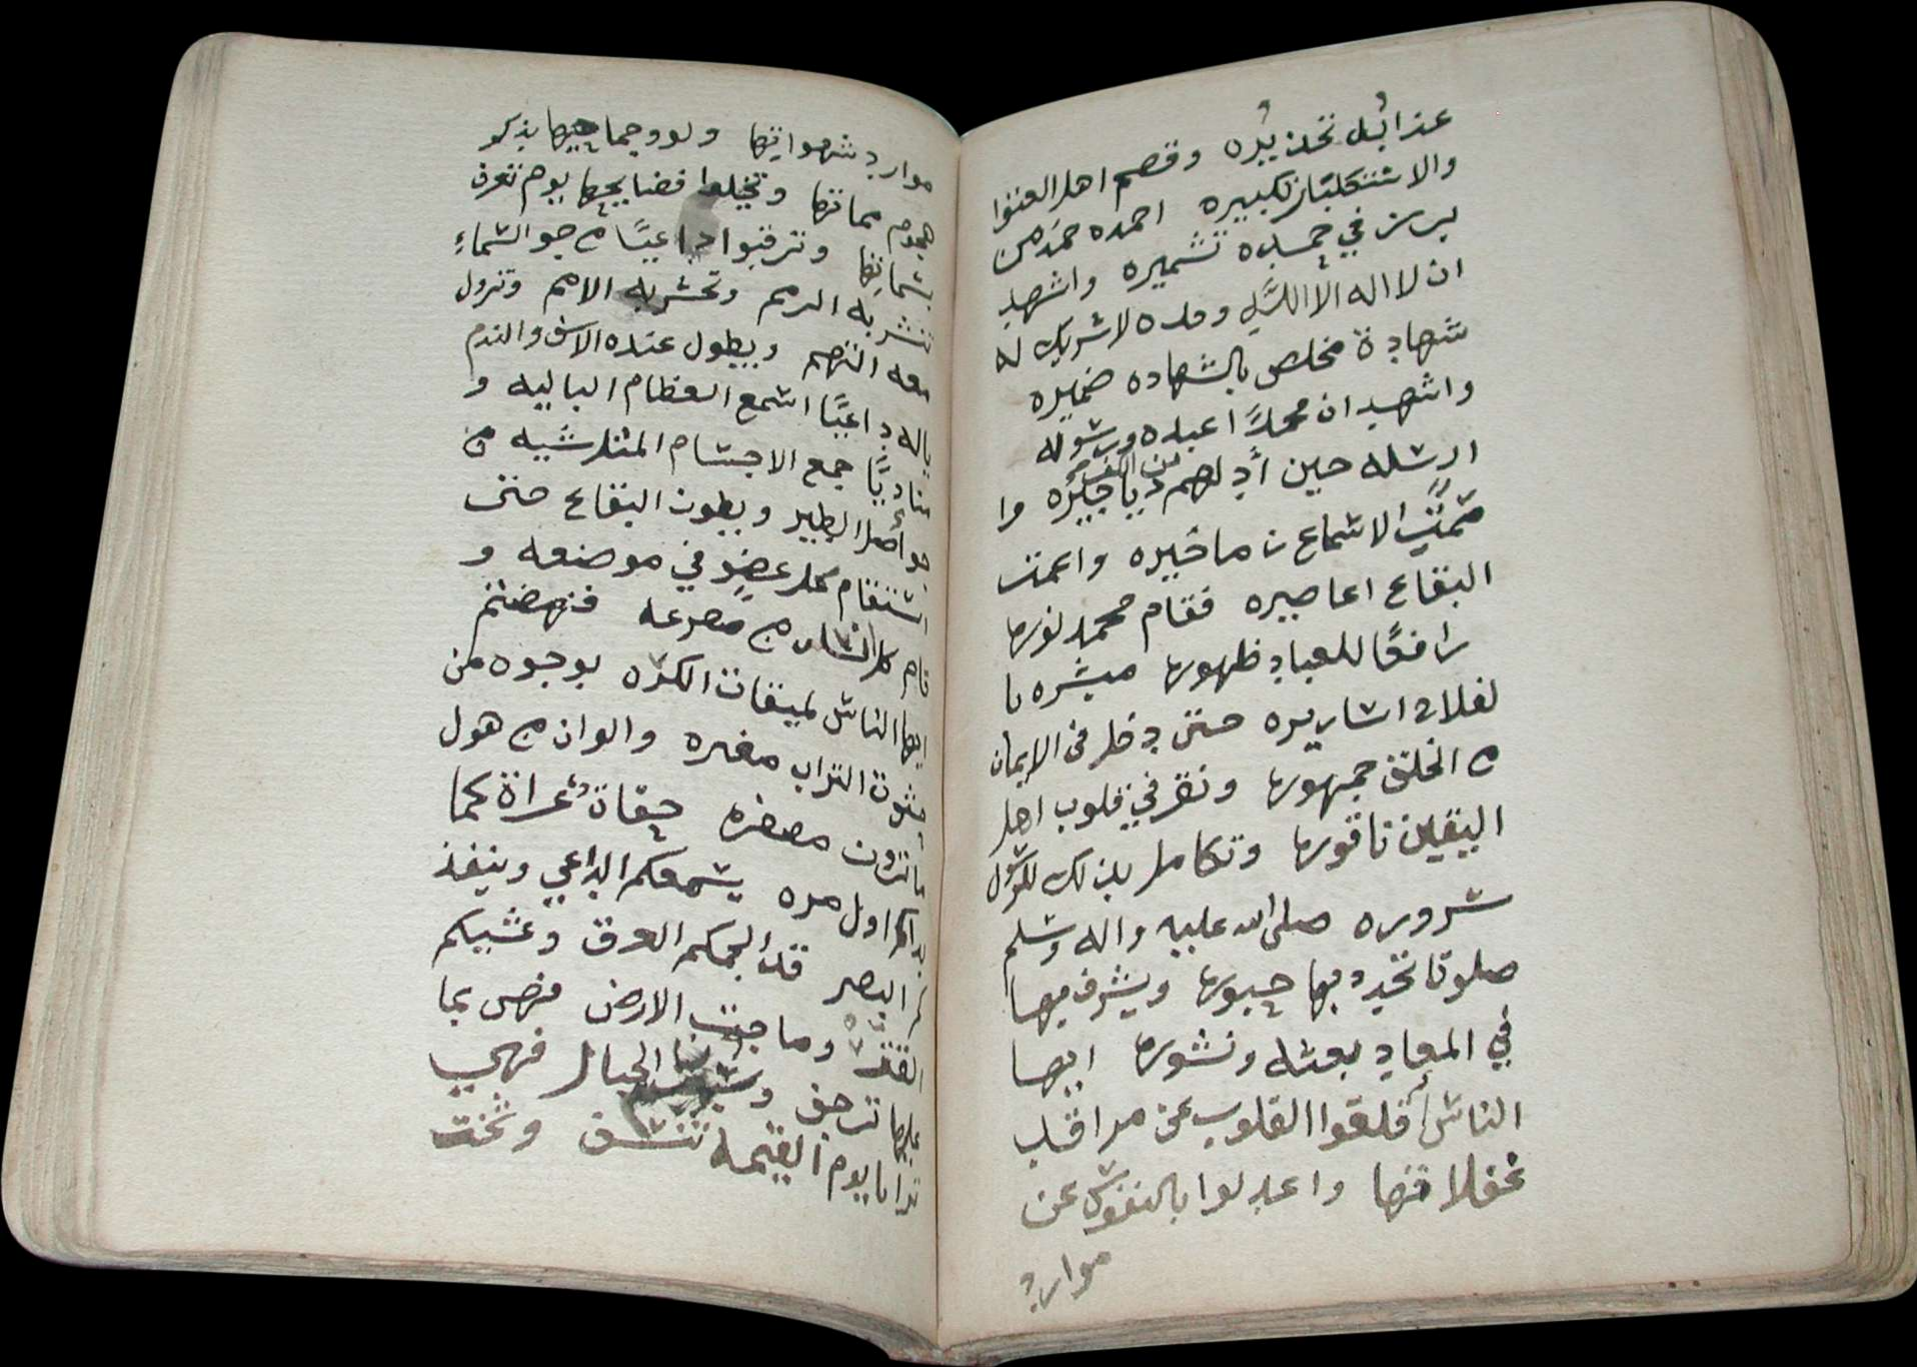 عذابُه نخذيره وقصم اهل العتوا
والاستكبار نكيره احمده حمد من
برز في حمده تشميره واشهد
ان لا اله الا الله وحده لا شريك له
شهادة مخلص بالشهاده ضميره
واشهد ان محمدًا عبده ورسوله
ارسله حين أدلهم من الكفر دياجيره وا
الاسماع ماخيره واعمت
البقاع اعاصيره فقام محمد نورها
رافعًا للعباد ظهورها مبشره با
لفلاح اساريره حتى دخل في الايمان
من الخلق جمهورها ونقر في قلوب اهل
اليقين ناقورها وتكامل بذلك للرسول
سروره صلى الله عليه واله وسلم
صلوتا تجدد بها حبورها ويشرف بها
في المعاد بعثه ونشورها ايها
الناس أقلعوا القلوب عن مراقد
غفلاتها واعدلوا بالنفوس عن
موارد
موارد شهواتها جماحها بذكر
هجوم مماتها وتخيلوا فضايحها يوم تعرف
بسماتها وترقبوا داعيًا من جو السماءِ
تنشر به الرمم وتحشر به الامم وتزول
معه التهم ويطول عنده الاسف والندم
ياله داعيًا اسمع العظام الباليه و
مناديًا جمع الاجسام المتلاشيه من
حواصل الطير وبطون البقاع حتى
استقام كل عضوٍ في موضعه و
قام كل انسان من مصرعه فنهضتم
ايها الناس لميقات الكره بوجوه من
حثوت التراب مغبره والوان من هول
ما ترون مصفره حفاة عراة كما
بداكم اول مره يسمعكم الداعي وينفذ
كم البصر قد الجمكم العرق وغشيكم
القتر وماجت الارض فهى بما
عليها ترجف الجبال فهي
يوم القيمة تنسف